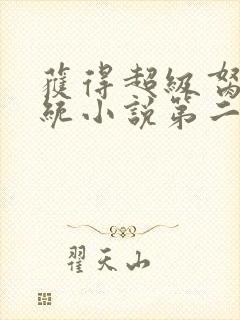 獲得超級
統小說第二
翟天山